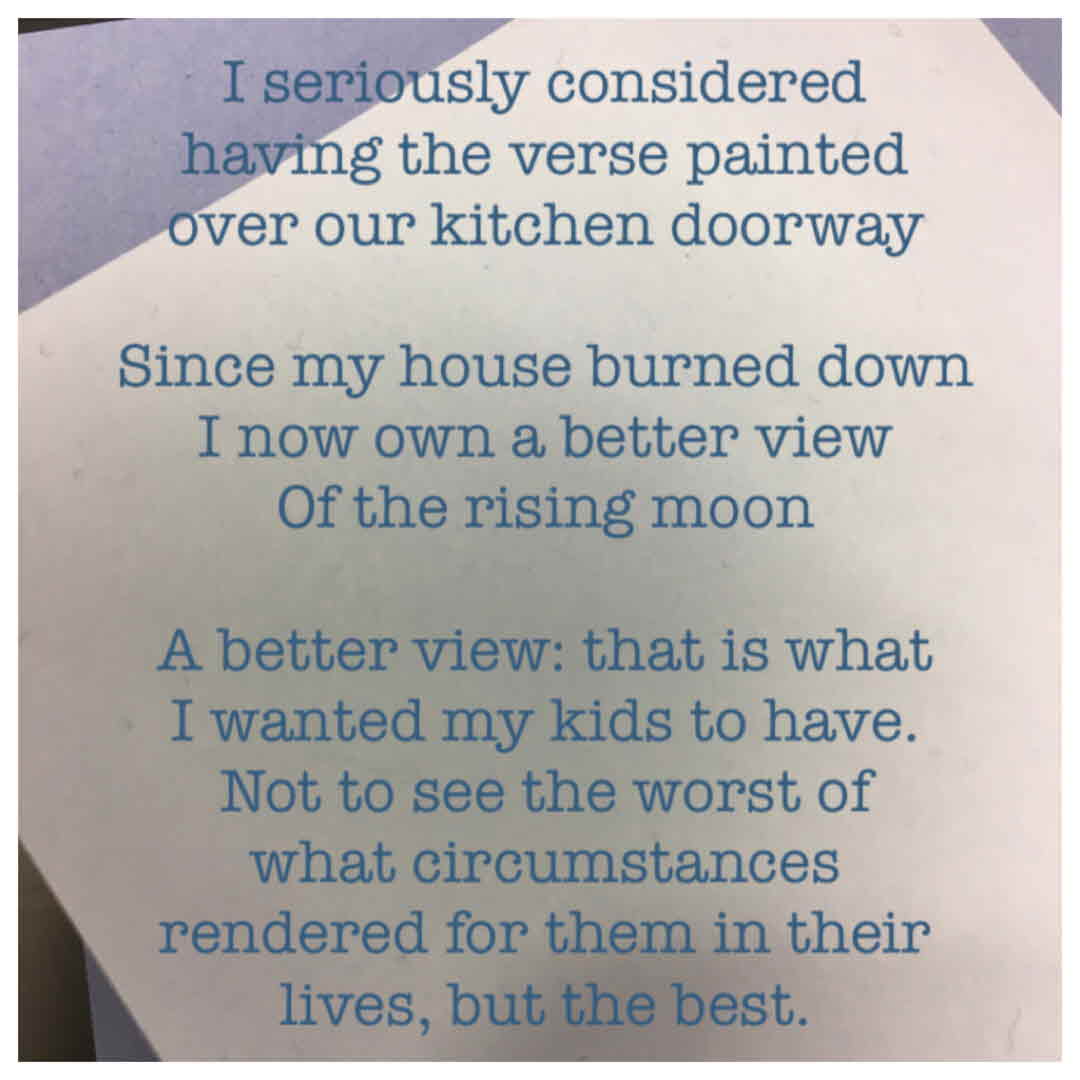 I seriously considered
having the verse painted
over our kitchen doorway
Since my house burned down
I now own a better view
Of the rising moon
A better view: that is what
I wanted my kids to have.
Not to see the worst of
what circumstances
rendered for them in their
lives, but the best.